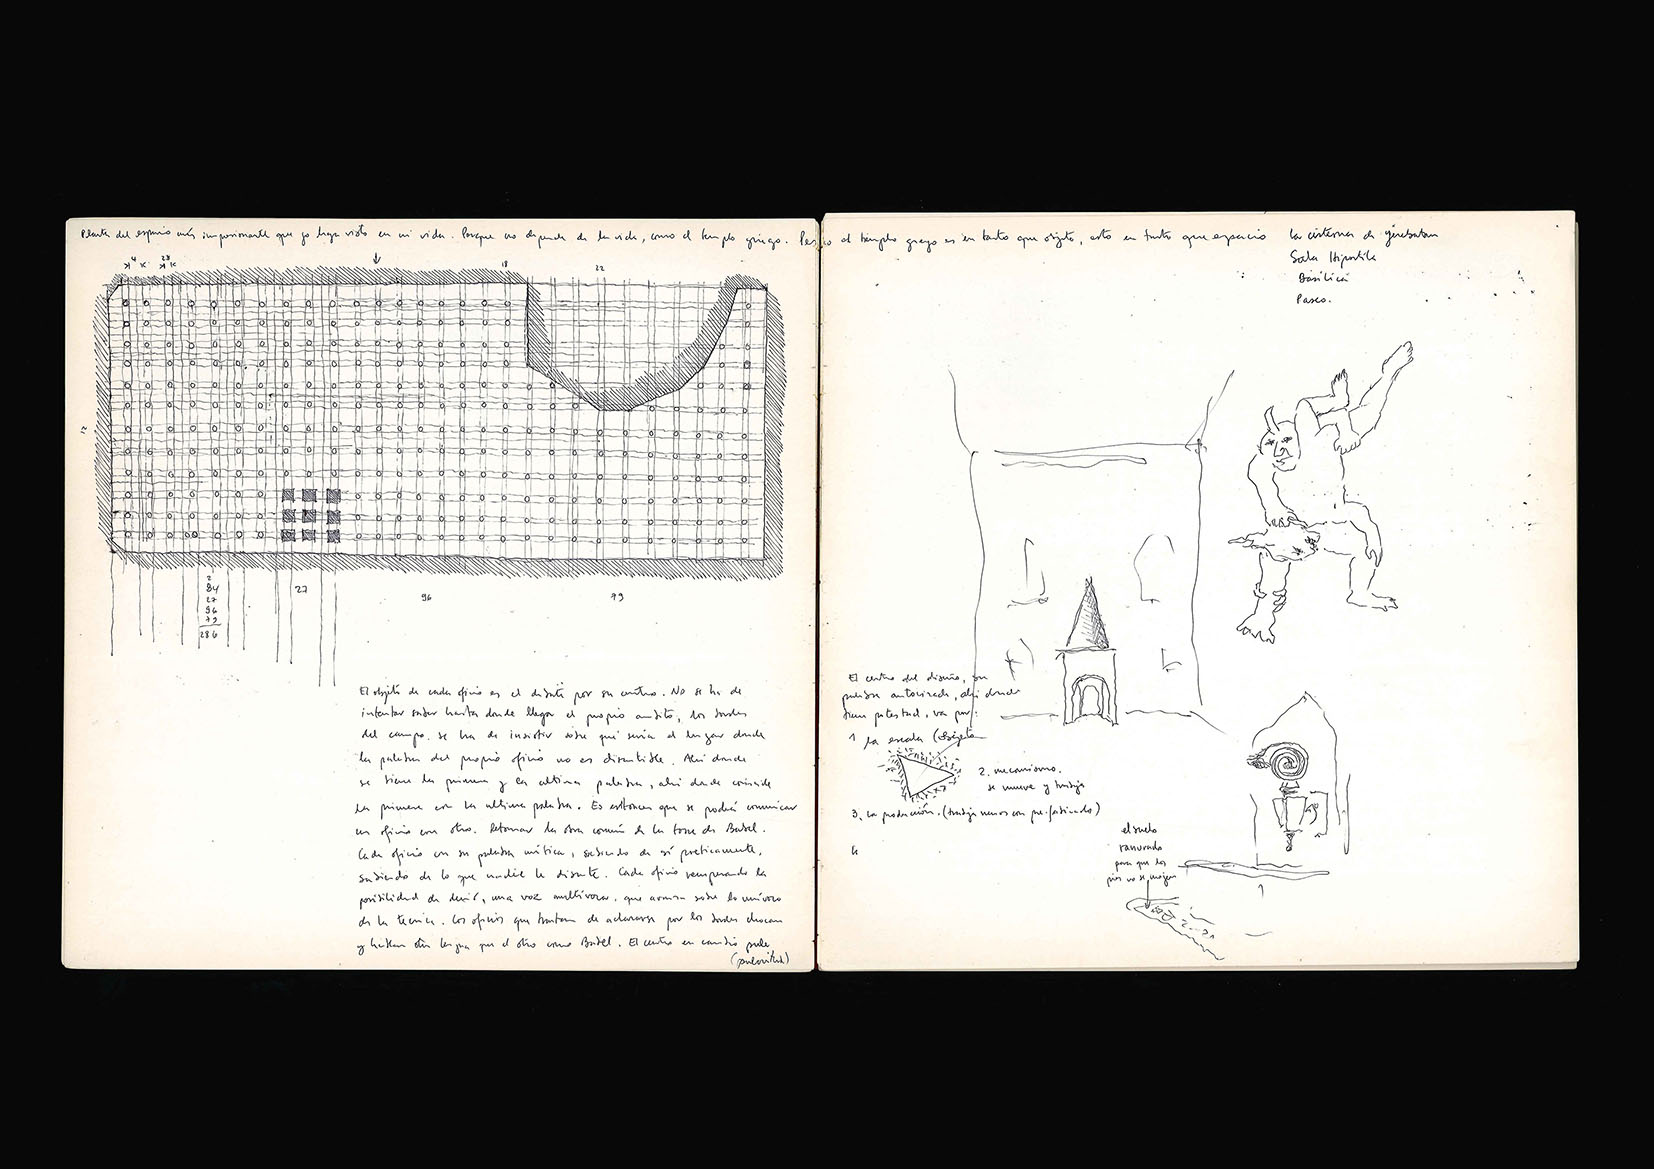 Planta del espacio más impresionante que yo haya visto en mi vida. Porque no depende de la vida, como el templo griego. Pero el templo griego es en tanto que objeto, esto en tanto que espacio
La cisterna de yerebatan
Sala Hipóstila
Basílica
Paseo.
4
28
18
22
12
2
84
27
96
79
286
27
96
79
El objeto de cada oficio es el disute por su centro. No se ha de
intentar saber hasta donde llega el propio ámbito, los bordes
del campo. Se ha de insistir sobre qué sería el lugar donde
la palabra del propio oficio no es discutible. Ahí donde
se tiene la primera y la última palabra, ahí donde coincide
la primera con la última palabra. Es entonces que se podrá comunicar
un oficio con otro. Retomar la obra común de la torre de Babel.
Cada oficio con su palabra mítica, saliendo de sí poéticamente,
sabiendo de lo que nadie le disute. Cada oficio recuperando la
posibilidad de decir, una voz multívoca, que avanza sobre lo unívoco
de la técnica. Los oficios que tratan de aclararse por los bordes chocan
y hablan otra lengua que el otro como Babel. El centro en cambio
El centro del diseño, su
palabra autorizada, ahí donde
tiene potestad, va por:
1 la escala (objeto
2. mecanismo.
se mueve y trabaja
3. La producción. (trabaja menos con pre-fabricado)
4
el suelo
ranurado
para que los
pies no se mojen